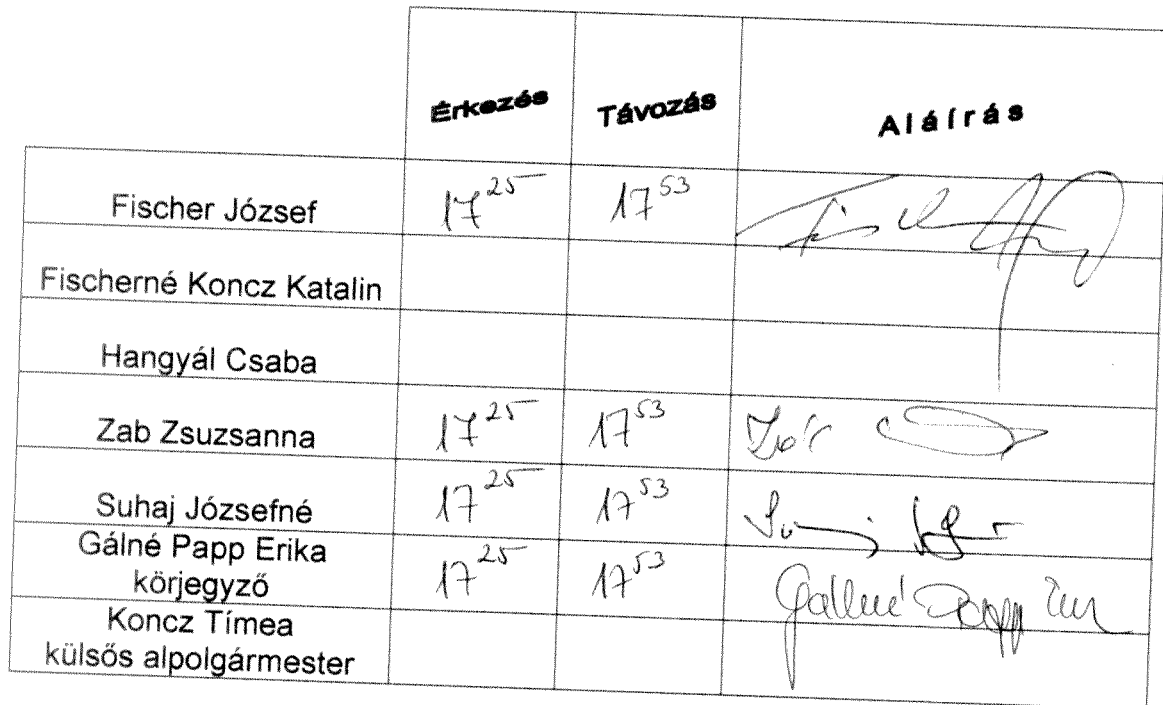 Érkezés Távozás Aláírás
Fischer József 17 25 17 53
Fischerné Koncz Katalin
Hangyál Csaba
Zab Zsuzsanna 17 25 17 53
Suhaj Józsefné 17 25 17 53
Gálné Papp Erika
körjegyző 17 25 17 53 Gállné Papp
Koncz Tímea
külsős alpolgármester